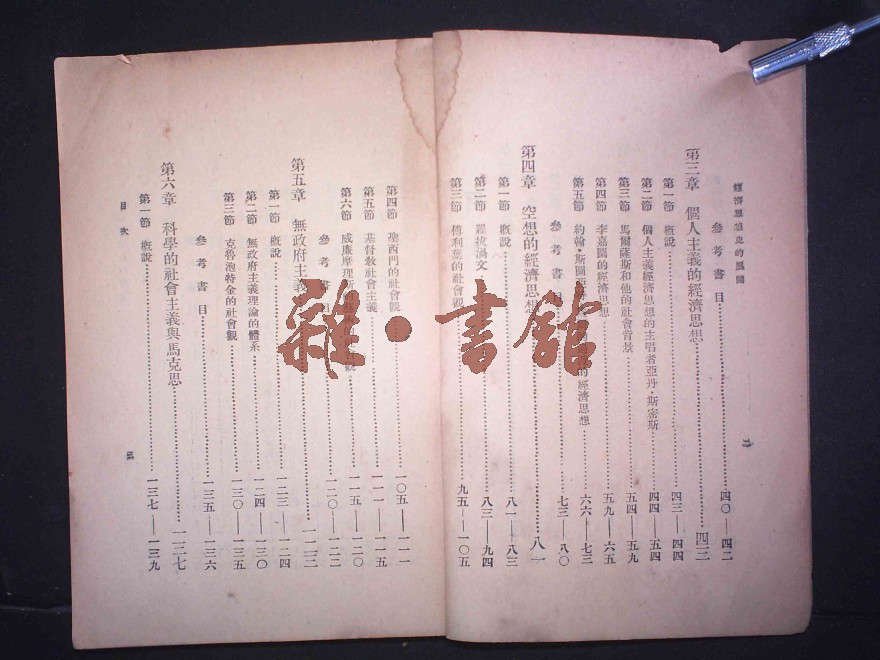 經濟思想史的展開
參考書目……四〇——四二
第三章 個人主義的經濟思想……四三
第一節 概說……四三——四四
第二節 個人主義經濟思想的主唱者亞丹·斯密斯……四四——五四
第三節 馬爾薩斯和他的社會背景……五四——五九
第四節 李嘉圖的經濟思想……五九——六五
第五節 約翰·斯圖亞 的經濟思想……六六——七三
參考書目……七三——八〇
第四章 空想的經濟思想……八一
第一節 概說……八一——八三
第二節 羅拔渦文……八三——九四
第三節 傅利葉的社會觀……九五——一〇五
第四節 聖西門的社會觀……一〇五——一一一
第五節 基督教社會主義……一一一——一一五
第六節 威廉摩理斯 觀……一一五——一二〇
參考書目……一二〇——一二二
第五章 無政府主義
第一節 概說……一二三——一二四
第二節 無政府主義理論的體系……一二四——一三〇
第三節 克魯泡特金的社會觀……一三〇——一三五
參考書目……一三五——一三六
第六章 科學的社會主義與馬克思
第一節 概說……一三七——一三九
目次
三
雜·書館